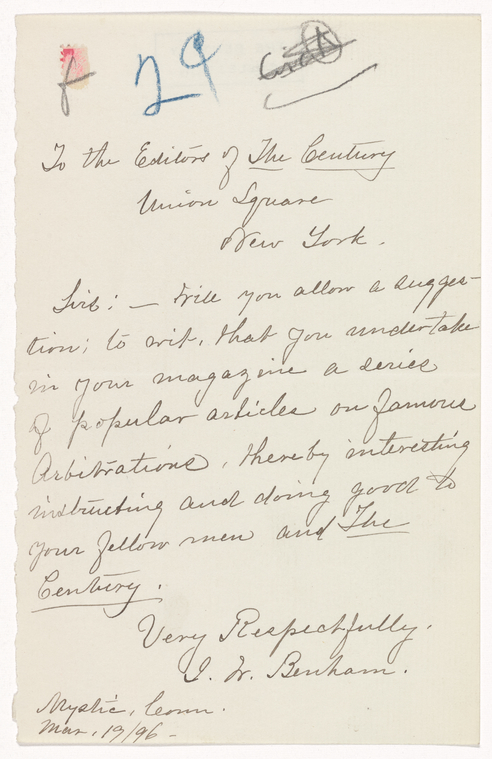 29
To the Editors of The Century
Union Square
New York.
Sirs: — Will you allow a sugges-
tion; to wit, that you undertake
in your magazine a series
of popular articles on famous
Arbitrations, thereby interesting
instructing and doing good to
your fellow men and The
Century.
Very Respectfully.
I. W. Benham.
Mystic, Conn.
Mar. 19/96 -